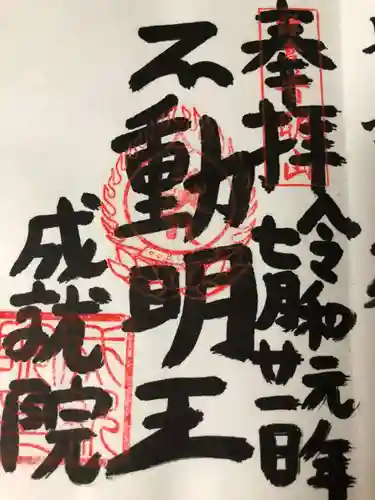 奉拝
令和元年
七月廿一日
不動明王
成就院